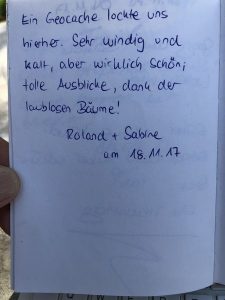 Ein Geocache lockte uns
hierher. Sehr windig und
kalt, aber wirklich schön;
tolle Ausblicke, dank der
laublosen Bäume!
Roland + Sabine
am 18.11.17